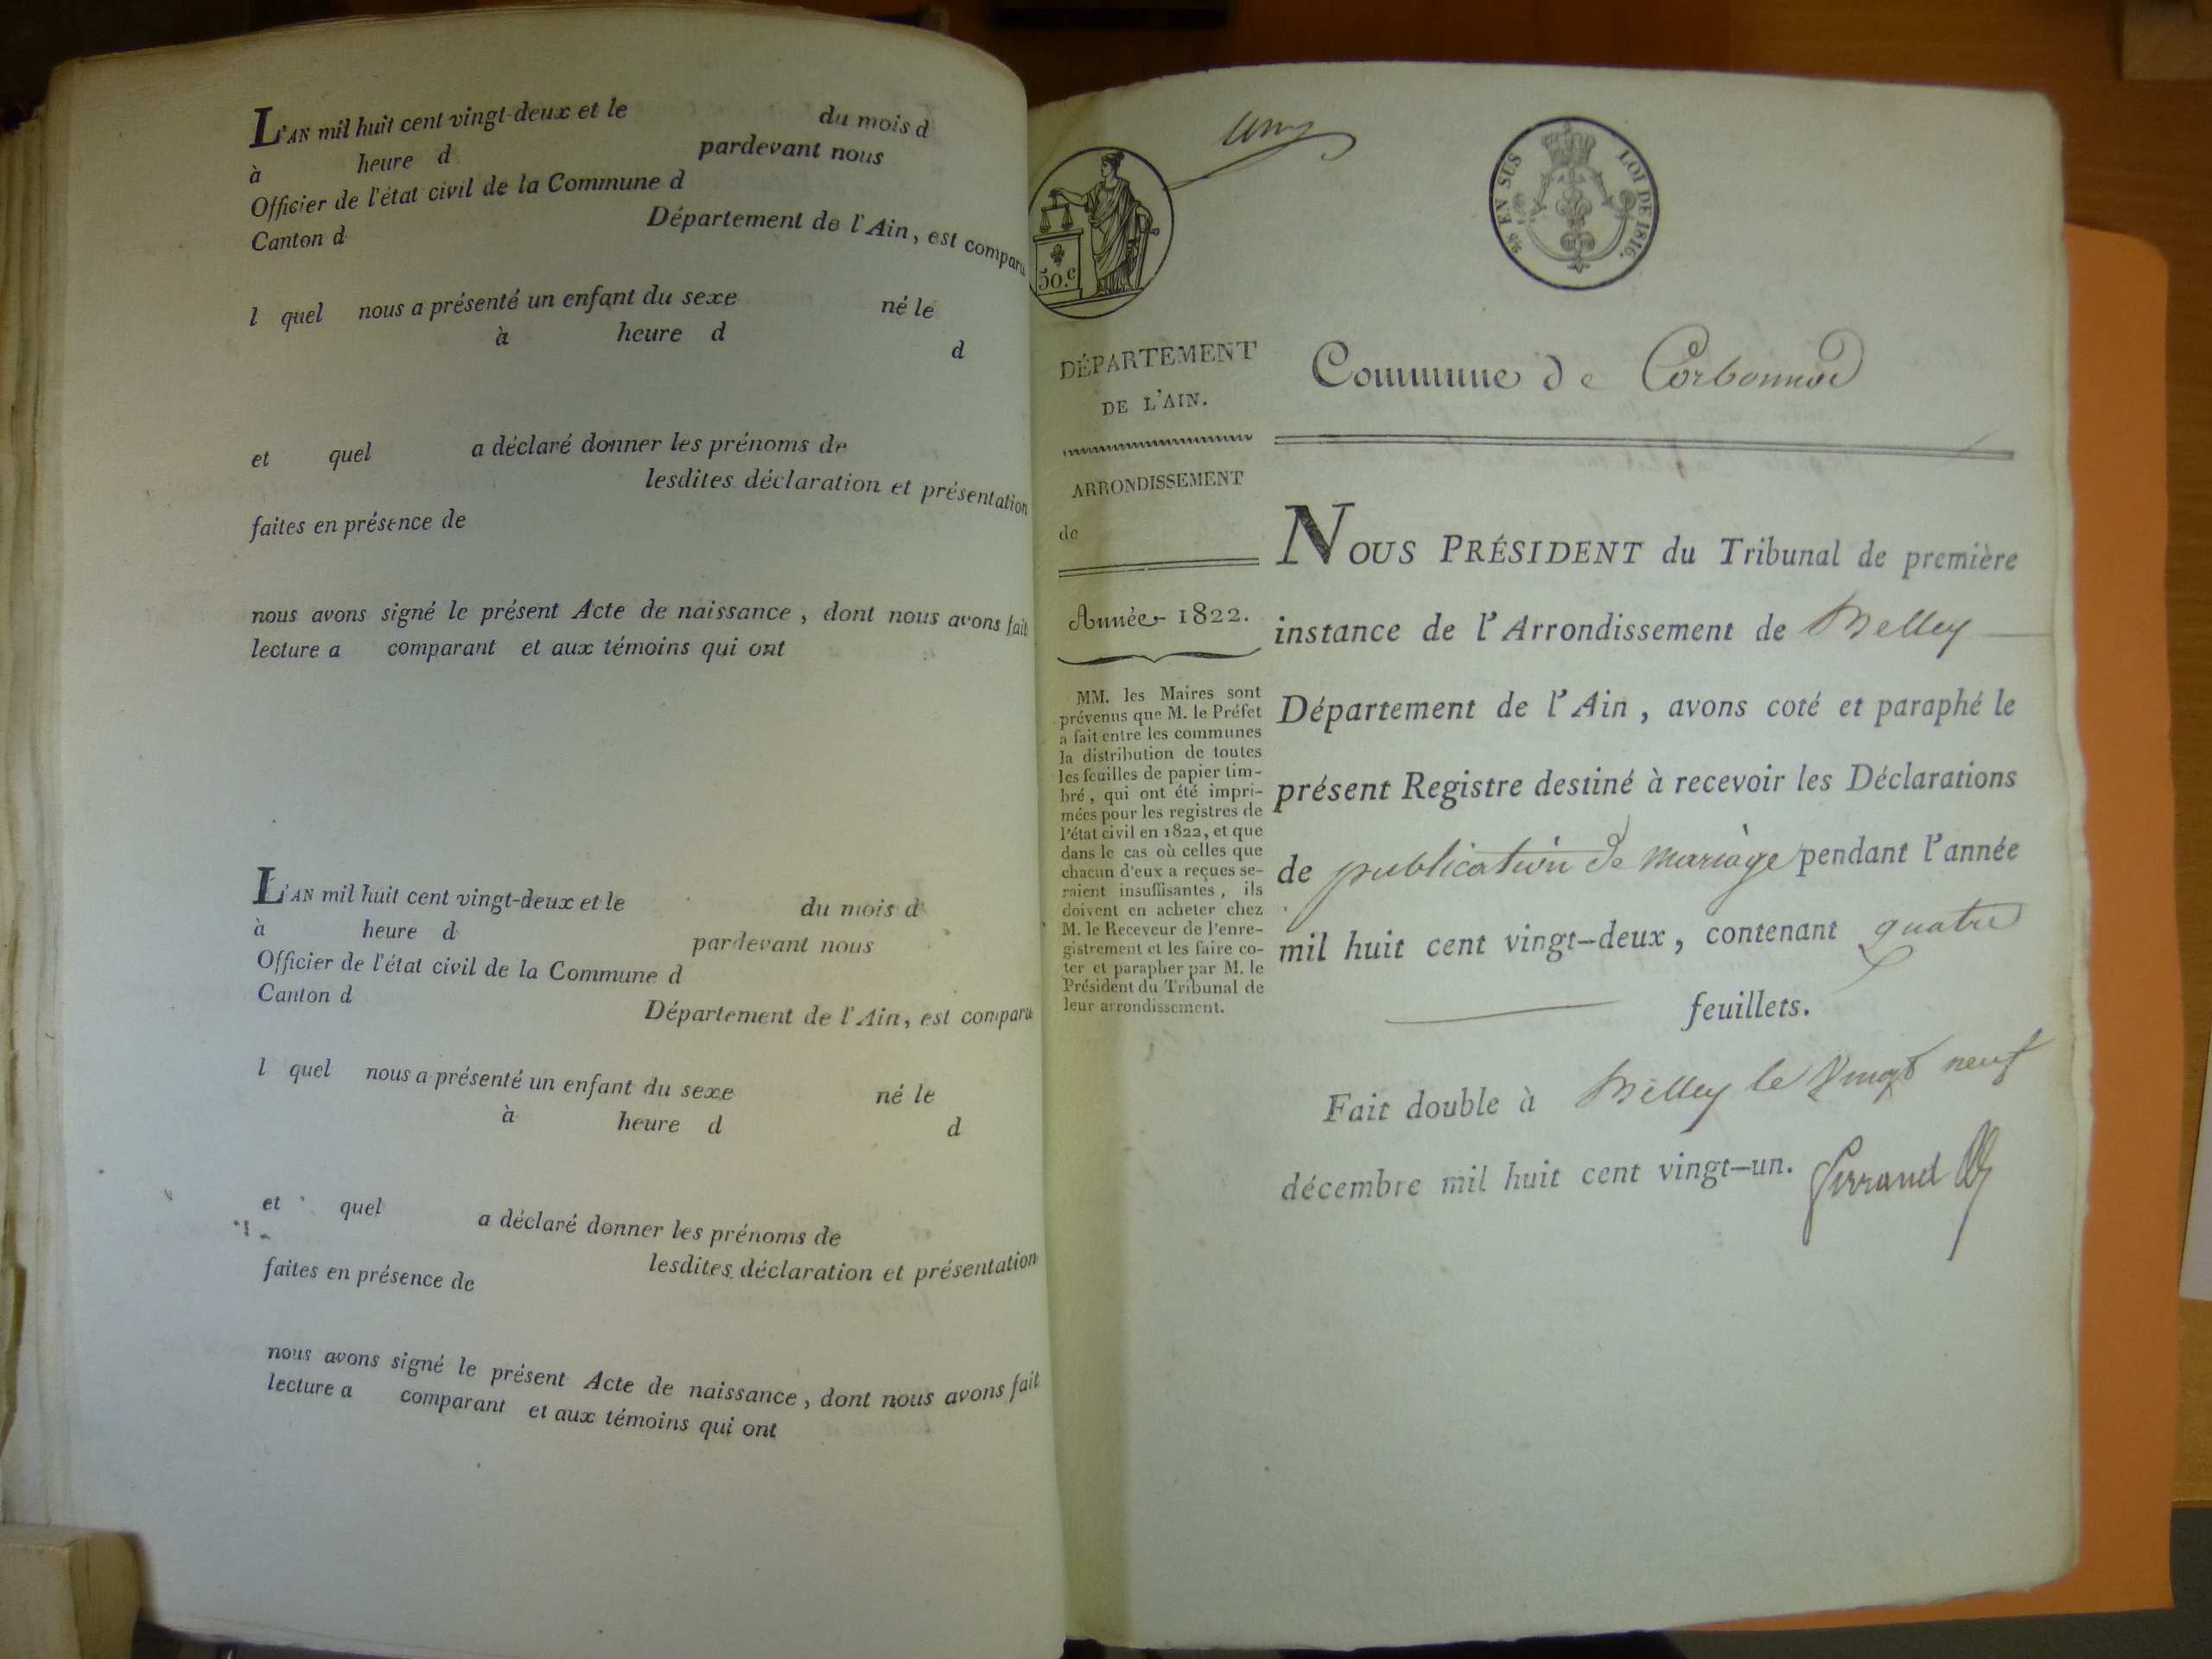 L'AN mil huit cent vingt-deux et le du mois d
à heure d pardevant nous
Officier de l'état civil de la Commune d
Canton d Département de l'Ain, est comparu
l quel nous a présenté un enfant du sexe né le
à heure d d
et quel a déclaré donner les prénoms de
lesdites déclaration et présentation
faites en présence de
nous avons signé le présent Acte de naissance, dont nous avons fait
lecture a comparant et aux témoins qui ont
L'AN mil huit cent vingt-deux et le du mois d
à heure d pardevant nous
Officier de l'état civil de la Commune d
Canton d Département de l'Ain, est comparu
l quel nous a présenté un enfant du sexe né le
à heure d d
et quel a déclaré donner les prénoms de
lesdites déclaration et présentation
faites en présence de
nous avons signé le présent Acte de naissance, dont nous avons fait
lecture a comparant et aux témoins qui ont
50.c
EN SUS LOI DE 1816.
DÉPARTEMENT
DE L'AIN.
ARRONDISSEMENT
de
Année 1822.
MM. les Maires sont
prévenus que M. le Préfet
a fait entre les communes
la distribution de toutes
les feuilles de papier tim-
bré, qui ont été impri-
mées pour les registres de
l'état civil en 1822, et que
dans le cas où celles que
chacun d'eux a reçues se-
raient insuffisantes, ils
doivent en acheter chez
M. le Receveur de l'enre-
gistrement et les faire co-
ter et parapher par M. le
Président du Tribunal de
leur arrondissement.
Commune de Corbonod
NOUS PRÉSIDENT du Tribunal de première
instance de l'Arrondissement de Belley
Département de l'Ain, avons coté et paraphé le
présent Registre destiné à recevoir les Déclarations
de publication de mariage pendant l'année
mil huit cent vingt-deux, contenant quatre
feuillets.
Fait double à Belley le Vingt neuf
décembre mil huit cent vingt-un.